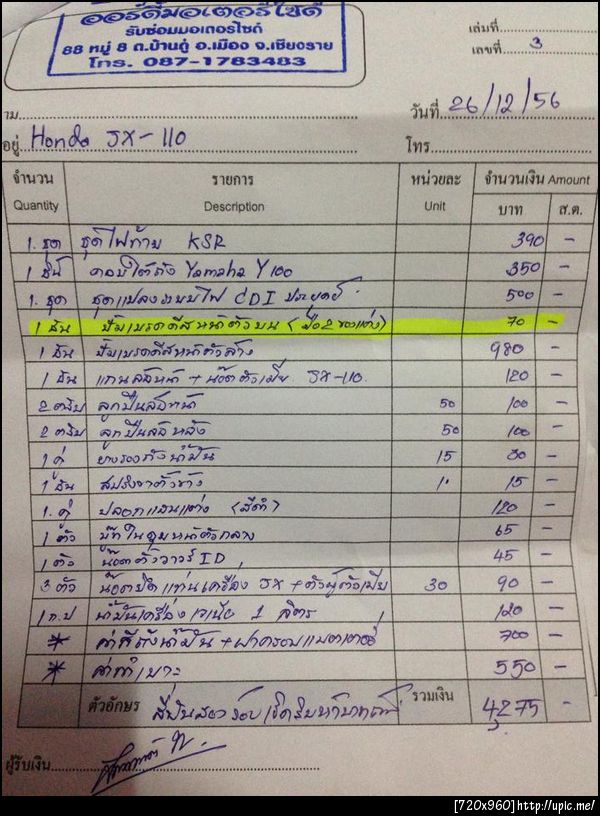 ออร์ดี้มอเตอร์ไซด์
รับซ่อมมอเตอร์ไซค์
88 หมู่ 8 ต.บ้านดู่ อ.เมือง จ.เชียงราย
โทร. 087-1783483
เล่มที่
เลขที่ 3
นาม
วันที่ 26/12/56
อยู่ Honda JX-110
โทร.
จำนวน รายการ หน่วยละ จำนวนเงิน Amount
Quantity Description Unit บาท ส.ต.
1 ชุด ชุดไฟท้าย KSR 390 -
1 ชิ้น คอม้าใต้ถัง Yamaha Y100 350 -
1 ชุด ชุดแปลงระบบไฟ CDI 500 -
1 ชิ้น ปั้มเบรคดีสหน้าตัวบน (มือ2 ของแต่ง) 70 -
1 ชิ้น ปั้มเบรคดีสหน้าตัวล่าง 980 -
1 ชิ้น แกนล้อหน้า + น๊อตตัวเมีย JX-110 120 -
2 ตลับ ลูกปืนล้อหน้า 50 100 -
2 ตลับ ลูกปืนล้อหลัง 50 100 -
1 คู่ ยางรองถังน้ำมัน 15 30 -
1 ชิ้น สปริงขาตั้งข้าง 15 -
1 คู่ ปลอกแฮนแต่ง (สีดำ) 120 -
1 ตัว บู๊ทในดุมหน้าตัวกลาง 65 -
1 ตัว น๊อตตั้งวาวร์ 45 -
3 ตัว น๊อตยึดแท่นเครื่อง JX + ตัวผู้ตัวเมีย 30 90 -
น้ำมันเครื่อง 1 ลิตร 120 -
* ค่าสีถังน้ำมัน + ฝาครอบแบตเตอรี่ 700 -
* ค่าทำเบาะ 550 -
ตัวอักษร สี่พันสองร้อยเจ็ดสิบห้าบาท รวมเงิน 4,275 -
ผู้รับเงิน
[720x960] http://upic.me/